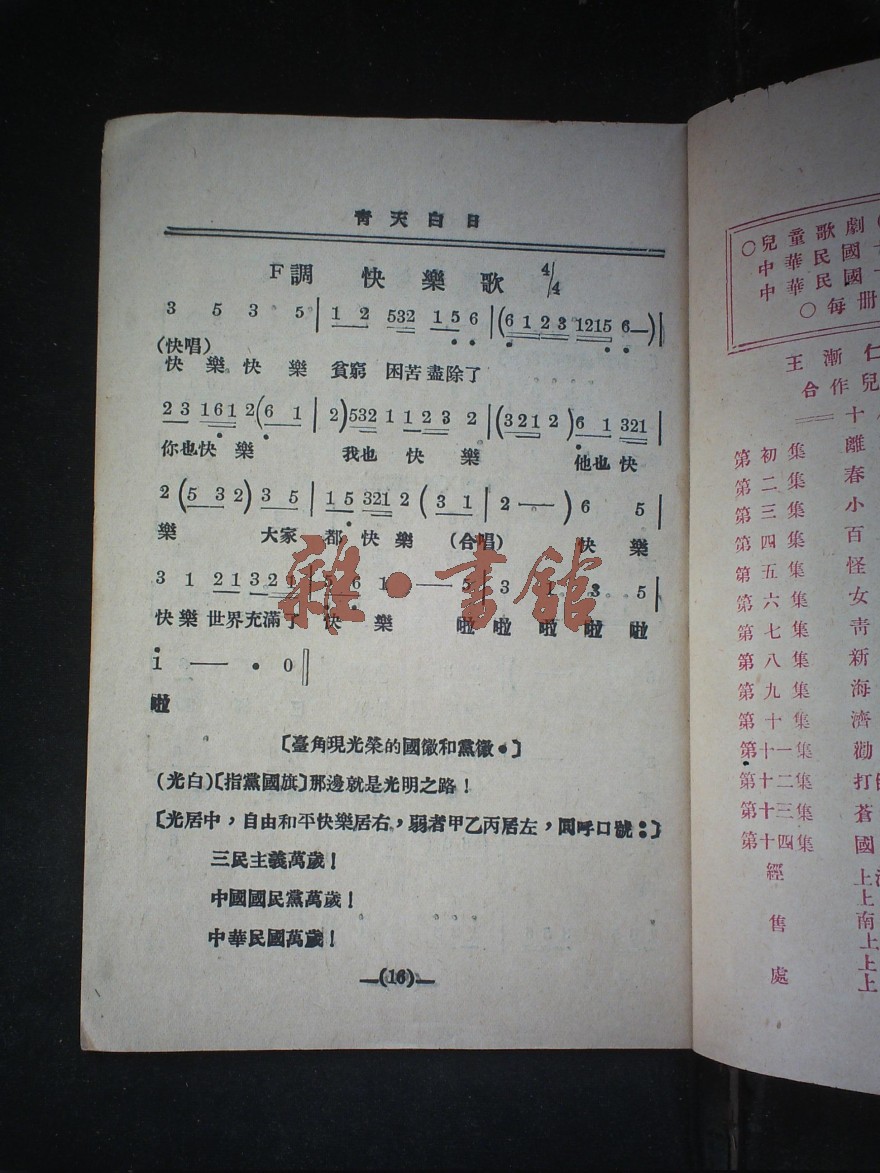 青天白日
F調 快樂歌 4/4
3 5 3 5 | 1 2 532 1 5 6 | (6 1 2 3 1215 6—) |
(快唱)
快樂快樂 貧窮 困苦盡除了
2 3 1 6 1 2 (6 1 | 2) 532 1 1 2 3 2 | (3 2 1 2) 6 1 321 |
你也快樂 我也快樂 他也快
2 (5 3 2) 3 5 | 1 5 321 2 (3 1 | 2 — —) 6 5 |
樂 大家 都快樂 (合唱) 快樂
3 1 2 1 3 2 1 | 5 6 1 — 5 | 3 1 3 5 |
快樂 世界充滿了 快樂 啦 啦 啦 啦 啦
i — • 0 ‖
啦
〔臺角現光榮的國徽和黨徽•〕
(光白)〔指黨國旗〕那邊就是光明之路!
〔光居中,自由和平快樂居右,弱者甲乙丙居左,同呼口號:〕
三民主義萬歲!
中國國民黨萬歲!
中華民國萬歲!
—(16)—
雜·書館
○兒童歌劇
中華民國
中華民國
○每冊
王漸仁
合作兒
十
第初集 離
第二集 春
第三集 小
第四集 百
第五集 怪
第六集 女
第七集 青
第八集 新
第九集 海
第十集 濟
第十一集 勸
第十二集 打
第十三集 蒼
第十四集 國
經售處
上
上
南
上
上
上